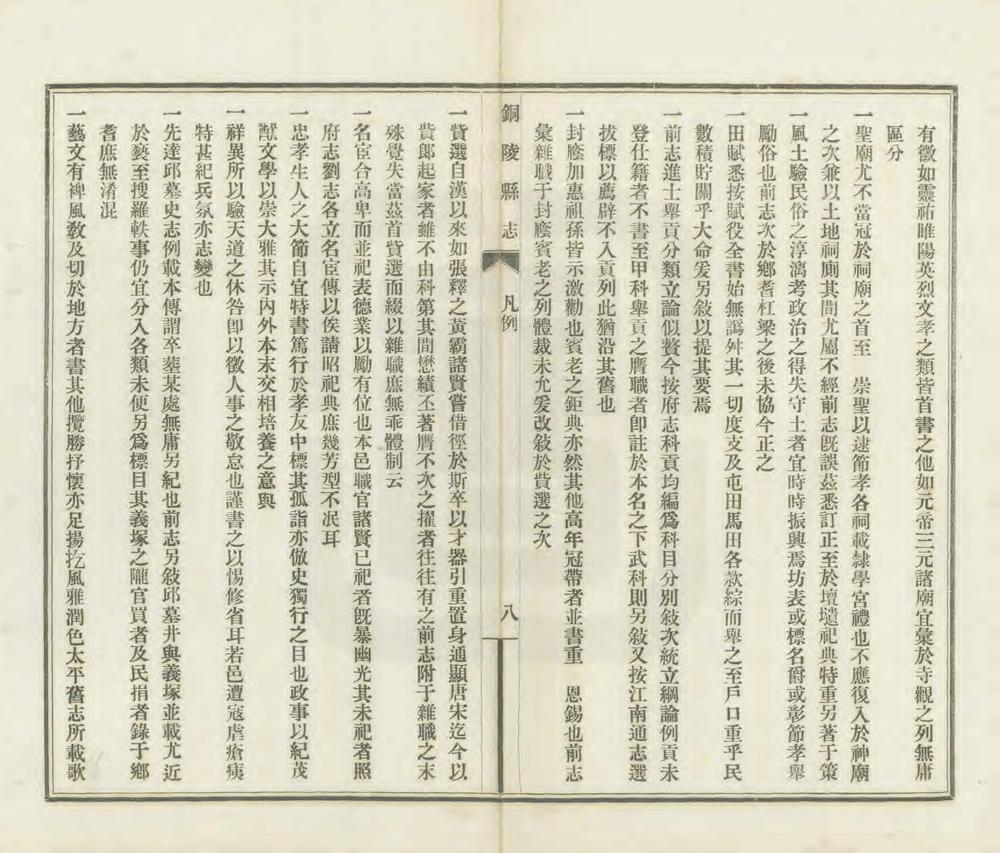 有徵如靈祐睢陽英烈文孝之類皆首書之他如元帝三元諸廟宜彙於寺觀之列無庸
區分
一聖廟尤不當冠於祠廟之首至　崇聖以逮節孝各祠載隸學宮禮也不應復入於神廟
之次兼以土地祠廁其間尤屬不經前志旣誤茲悉訂正至於壇壝祀典特重另著于策
一風土驗民俗之淳漓考政治之得失守土者宜時時振興焉坊表或標名爵或彰節孝舉
勵俗也前志次於鄉耆杠梁之後未協今正之
一田賦悉按賦役全書始無譌舛其一切度支及屯田馬田各款綜而舉之至戶口重乎民
數積貯關乎大命爰另敍以提其要焉
一前志進士舉貢分類立論似贅今按府志科貢均編爲科目分別敍次統立綱論例貢未
登仕籍者不書至甲科舉貢之膺職者卽註於本名之下武科則另敍又按江南通志選
拔標以薦辟不入貢列此猶沿其舊也
一封廕加惠祖孫皆示激勸也賓老之鉅典亦然其他高年冠帶者並書重　恩錫也前志
彙雜職于封廕賓老之列體裁未允爰改敍於貲選之次
銅陵縣志　凡例　八
一貲選自漢以來如張釋之黃霸諸賢嘗借徑於斯卒以才器引重置身通顯唐宋迄今以
貲郎起家者雖不由科第其間懋績丕著膺不次之擢者往往有之前志附于雜職之末
殊覺失當茲首貲選而綴以雜職庶無乖體制云
一名宦合高卑而並祀表德業以勵有位也本邑職官諸賢已祀者旣暴幽光其未祀者照
府志劉志各立名宦傳以俟請昭祀典庶幾芳型不泯耳
一忠孝生人之大節自宜特書篤行於孝友中標其孤詣亦倣史獨行之目也政事以紀茂
猷文學以崇大雅其示內外本末交相培養之意與
一祥異所以驗天道之休咎卽以徵人事之敬怠也謹書之以惕修省耳若邑遭寇虐瘡痍
特甚紀兵氛亦志變也
一先達邱墓史志例載本傳謂卒塟某處無庸另紀也前志另敍邱墓井與義塚並載尤近
於褻至搜羅軼事仍宜分入各類未便另爲標目其義塚之隴官買者及民捐者錄于鄉
耆庶無淆混
一藝文有裨風敎及切於地方者書其他攬勝抒懷亦足揚扢風雅潤色太平舊志所載歌